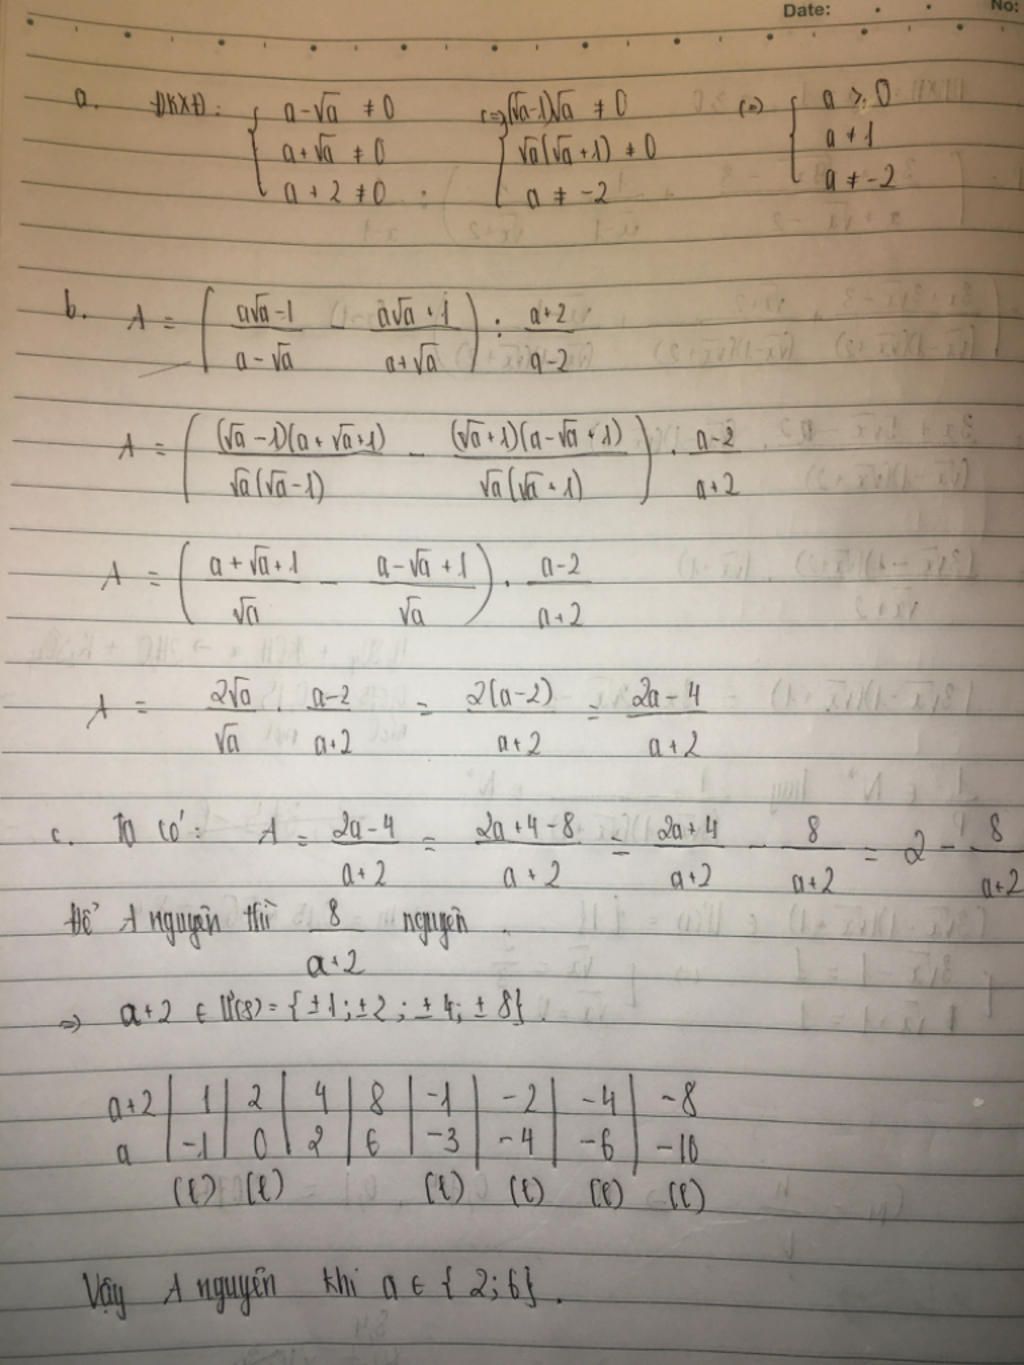 Date: No:
a. ĐKXĐ: { a - √a ≠ 0 (=) { (√a-1)√a ≠ 0 (=) { a ≥ 0
a + √a ≠ 0 √a(√a+1) ≠ 0 a ≠ 1
a + 2 ≠ 0 ; a ≠ -2 a ≠ -2
b. A = ( (a√a - 1)/(a - √a) - (a√a + 1)/(a + √a) ) : (a+2)/(a-2)
A = ( (√a - 1)(a + √a + 1)/(√a(√a - 1)) - (√a + 1)(a - √a + 1)/(√a(√a + 1)) ) . (a-2)/(a+2)
A = ( (a + √a + 1)/√a - (a - √a + 1)/√a ) . (a-2)/(a+2)
A = 2√a/√a . (a-2)/(a+2) = 2(a-2)/(a+2) = (2a-4)/(a+2)
c. Ta có: A = (2a-4)/(a+2) = (2a+4-8)/(a+2) = (2a+4)/(a+2) - 8/(a+2) = 2 - 8/(a+2)
Để A nguyên thì 8/(a+2) nguyên.
=> a+2 ∈ Ư(8) = {±1; ±2; ±4; ±8}.
a+2 | 1 | 2 | 4 | 8 | -1 | -2 | -4 | -8
a | -1 | 0 | 2 | 6 | -3 | -4 | -6 | -10
(l) (l) (l) (l) (l) (l)
Vậy A nguyên khi a ∈ {2; 6}.